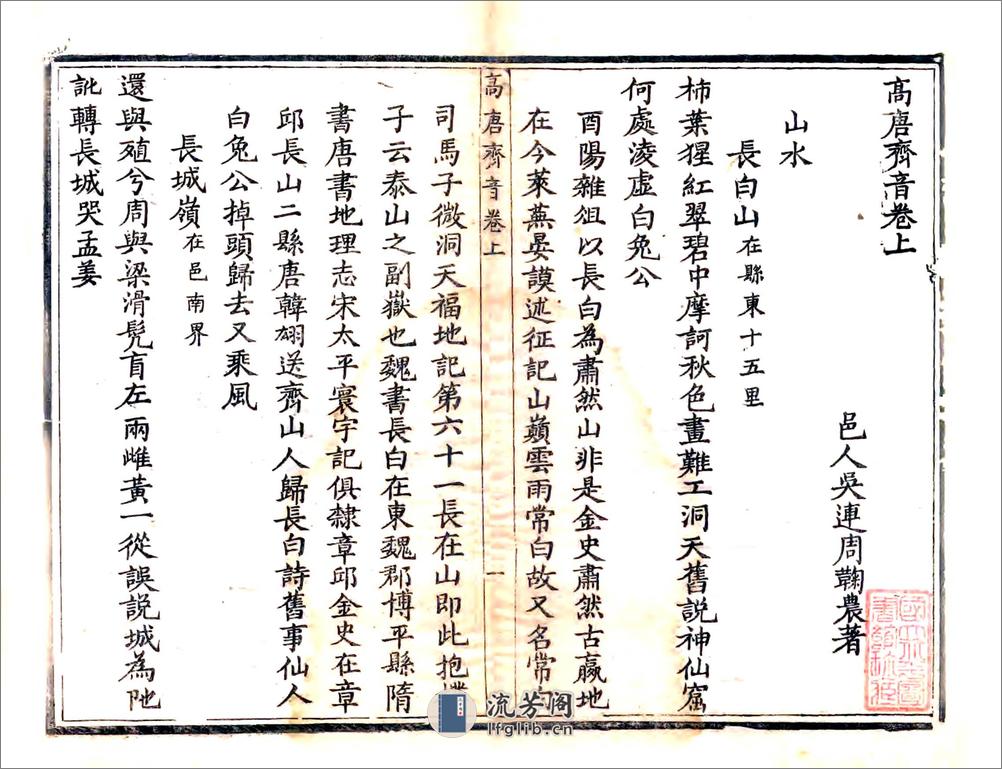 高唐齊音卷上
邑人吳連周鞠農著
山水
長白山在縣東十五里
柿葉猩紅翠碧中摩訶秋色畫難工洞天舊說神仙窟
何處淩虛白兔公
酉陽雜俎以長白為肅然山非是金史肅然古嬴地
在今萊蕪晏謨述征記山巔雲雨常白故又名常白
高唐齊音卷上
一
司馬子微洞天福地記第六十一長在山即此抱樸
子云泰山之副嶽也魏書長白在東魏郡博平縣隋
書唐書地理志宋太平寰宇記俱隸章邱金史在章
邱長山二縣唐韓翃送齊山人歸長白詩舊事仙人
白兔公掉頭歸去又乘風
長城嶺在邑南界
還與殖兮周與梁滑髡盲左兩雌黃一從誤說城為阤
訛轉長城哭孟姜
流芳阁
lfglib.cn